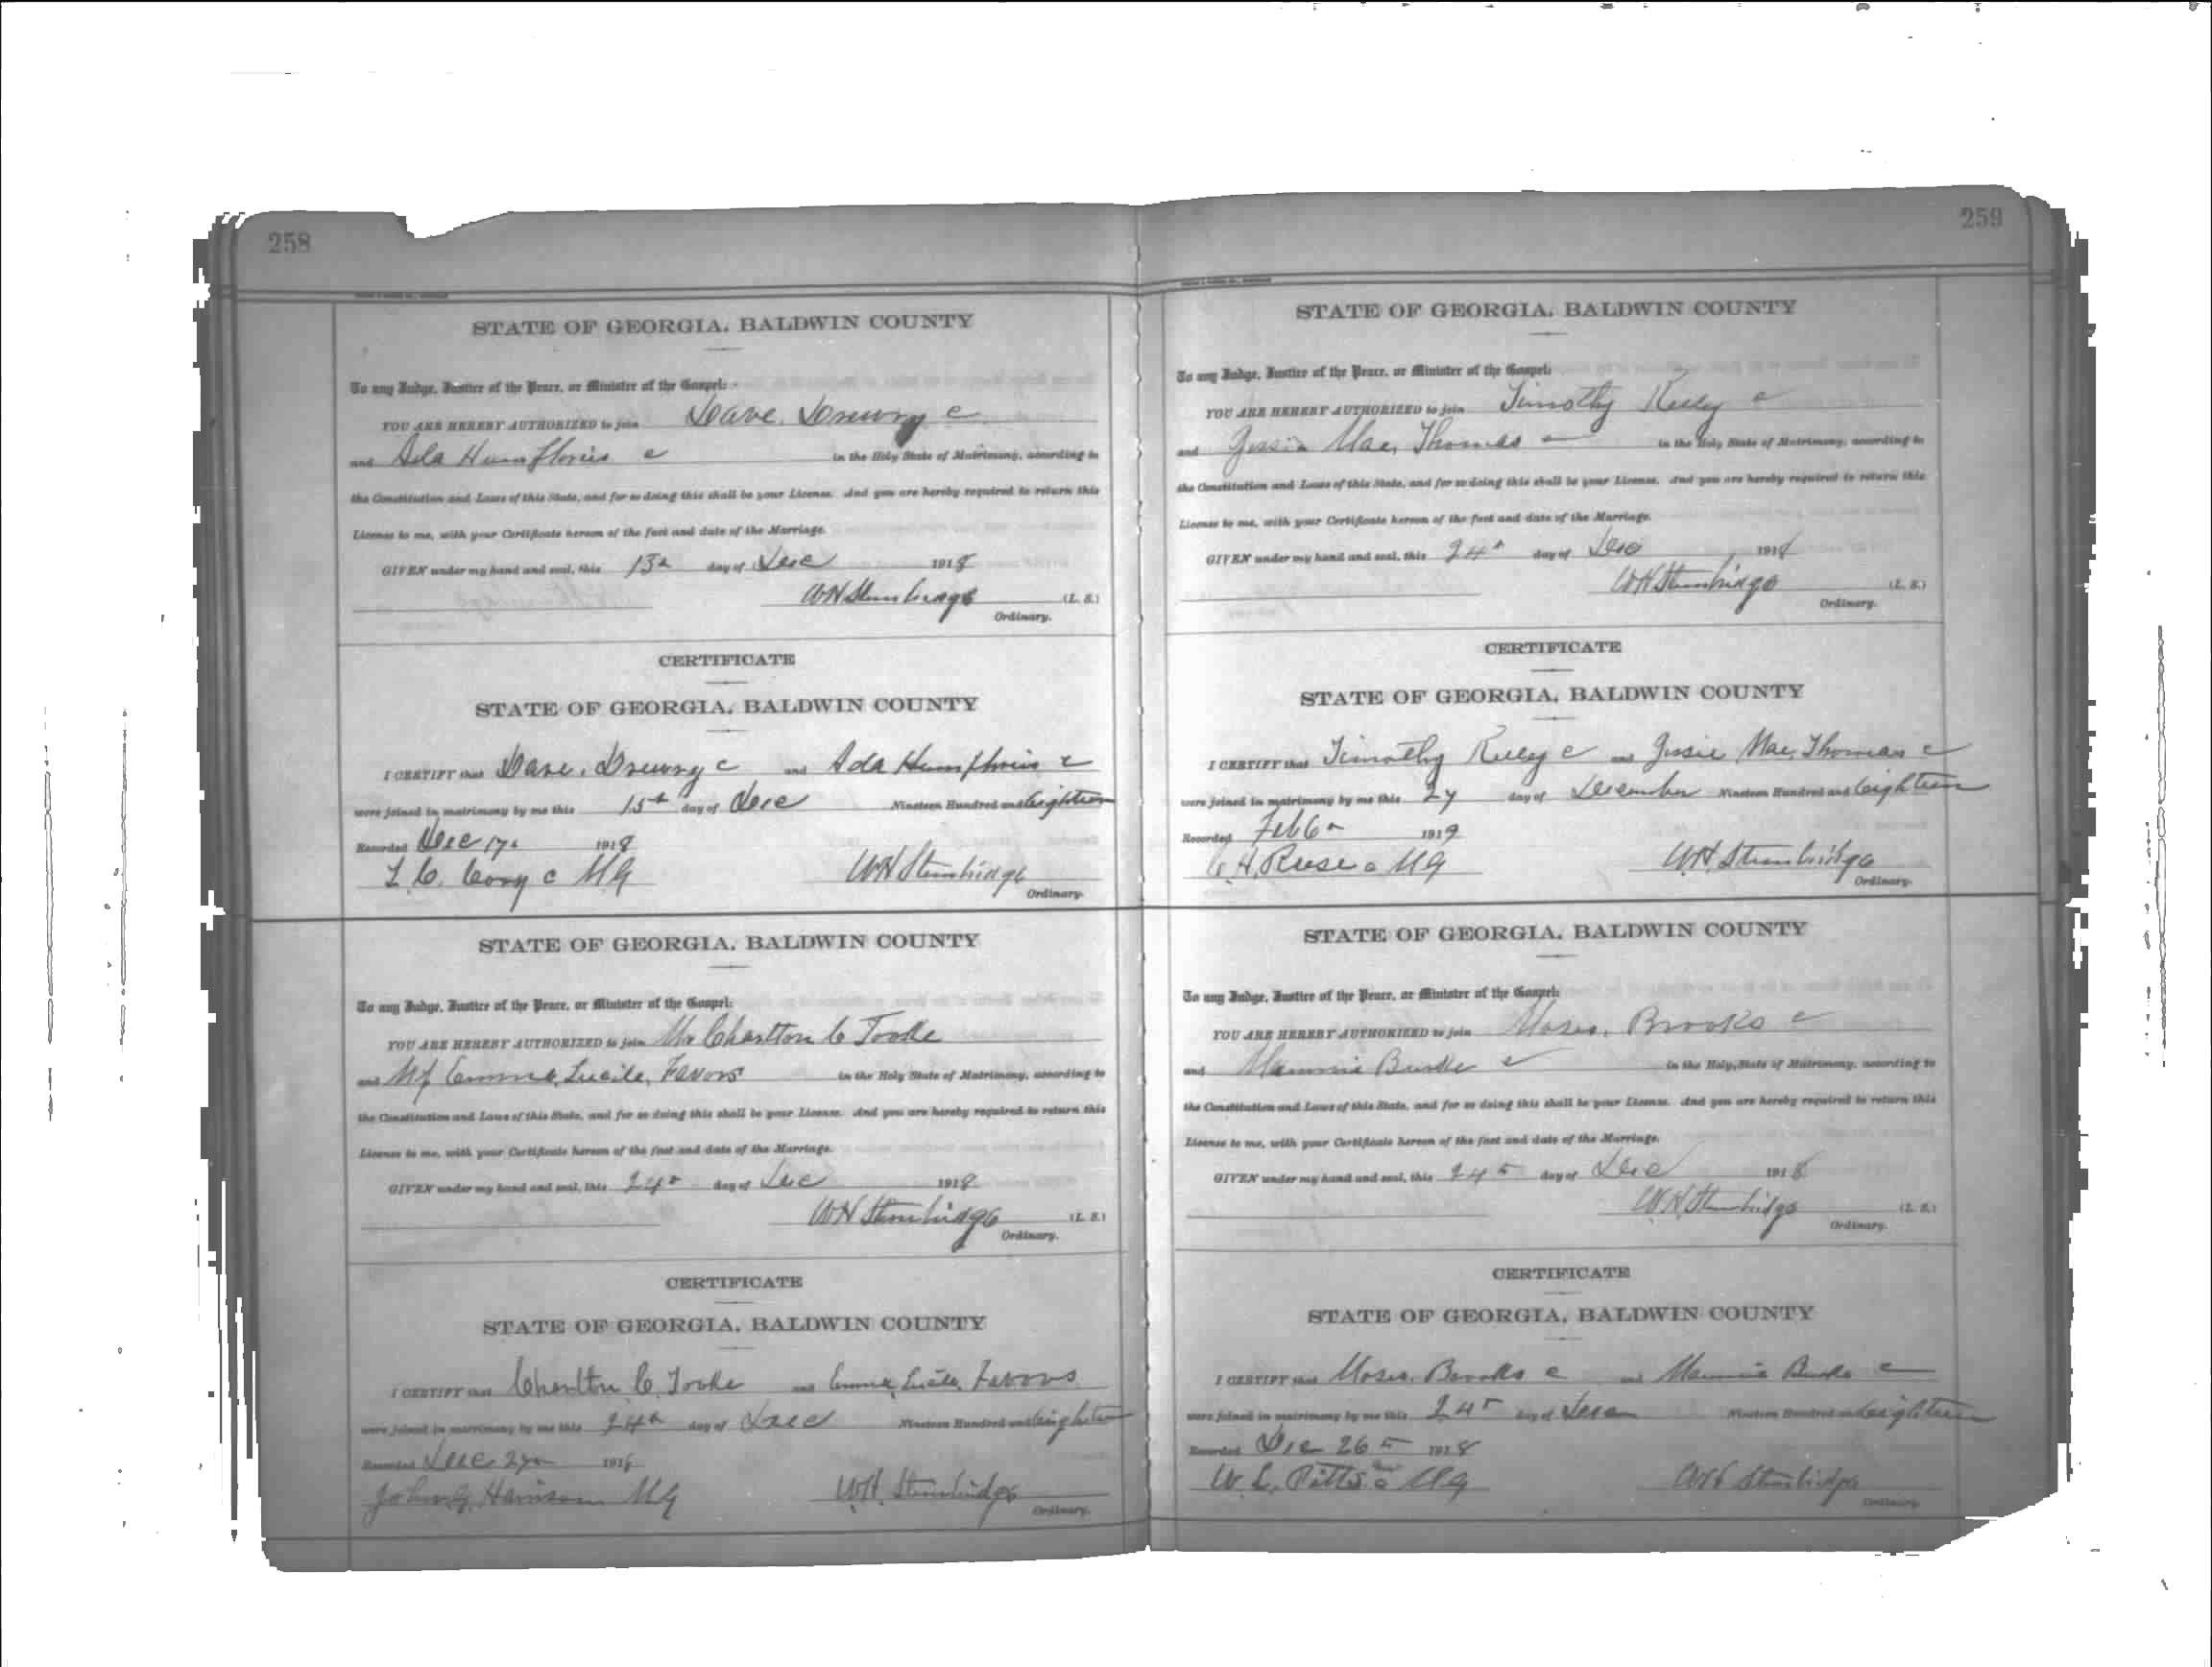 258
STATE OF GEORGIA, BALDWIN COUNTY
To any Judge, Justice of the Peace, or Minister of the Gospel:
YOU ARE HEREBY AUTHORIZED to join Dave Drewry c
and Ada Humphries c in the Holy State of Matrimony, according to
the Constitution and Laws of this State, and for so doing this shall be your License. And you are hereby required to return this
License to me, with your Certificate hereon of the fact and date of the Marriage.
GIVEN under my hand and seal, this 13th day of Dec 1918
WH Stembridge (L. S.)
Ordinary.
CERTIFICATE
STATE OF GEORGIA, BALDWIN COUNTY
I CERTIFY that Dave Drewry c and Ada Humphries c
were joined in matrimony by me this 15th day of Dec Nineteen Hundred and Eighteen
Recorded Dec 17 1918
c MG WH Stembridge
Ordinary.
STATE OF GEORGIA, BALDWIN COUNTY
To any Judge, Justice of the Peace, or Minister of the Gospel:
YOU ARE HEREBY AUTHORIZED to join Mr Charlton C Tooke
and Emma Lucile Favors in the Holy State of Matrimony, according to
the Constitution and Laws of this State, and for so doing this shall be your License. And you are hereby required to return this
License to me, with your Certificate hereon of the fact and date of the Marriage.
GIVEN under my hand and seal, this 24th day of Dec 1918
WH Stembridge (L. S.)
Ordinary.
CERTIFICATE
STATE OF GEORGIA, BALDWIN COUNTY
I CERTIFY that Charlton C. Tooke and Emma Lucile Favors
were joined in matrimony by me this 24th day of Dec Nineteen Hundred and Eighteen
Recorded Dec 1918
John G. Harrison MG WH. Stembridge
Ordinary.
259
STATE OF GEORGIA, BALDWIN COUNTY
To any Judge, Justice of the Peace, or Minister of the Gospel:
YOU ARE HEREBY AUTHORIZED to join Timothy c
and Jessie Mae Thomas c in the Holy State of Matrimony, according to
the Constitution and Laws of this State, and for so doing this shall be your License. And you are hereby required to return this
License to me, with your Certificate hereon of the fact and date of the Marriage.
GIVEN under my hand and seal, this 24th day of Dec 1918
WH Stembridge (L. S.)
Ordinary.
CERTIFICATE
STATE OF GEORGIA, BALDWIN COUNTY
I CERTIFY that Timothy c and Jessie Mae Thomas c
were joined in matrimony by me this 27 day of December Nineteen Hundred and Eighteen
Recorded Feb 6th 1919
H. Reese c MG W.H. Stembridge
Ordinary.
STATE OF GEORGIA, BALDWIN COUNTY
To any Judge, Justice of the Peace, or Minister of the Gospel:
YOU ARE HEREBY AUTHORIZED to join Moses Brooks c
and Mammie Burke c in the Holy State of Matrimony, according to
the Constitution and Laws of this State, and for so doing this shall be your License. And you are hereby required to return this
License to me, with your Certificate hereon of the fact and date of the Marriage.
GIVEN under my hand and seal, this 24th day of Dec 1918
W H Stembridge (L. S.)
Ordinary.
CERTIFICATE
STATE OF GEORGIA, BALDWIN COUNTY
I CERTIFY that Moses Brooks c and Mammie Burke c
were joined in matrimony by me this 24th day of Dec Nineteen Hundred and Eighteen
Recorded Dec 26th 1918
W. L. Pitts c MG WH Stembridge
Ordinary.